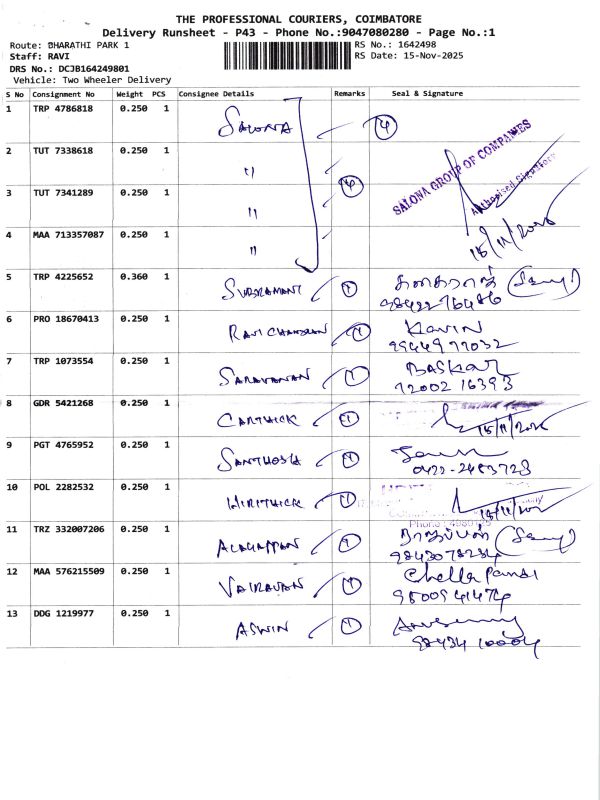 THE PROFESSIONAL COURIERS, COIMBATORE
Delivery Runsheet - P43 - Phone No.:9047080280 - Page No.:1
Route: BHARATHI PARK 1
Staff: RAVI
DRS No.: DCJB164249801
Vehicle: Two Wheeler Delivery
RS No.: 1642498
RS Date: 15-Nov-2025
S No Consignment No Weight PCS Consignee Details Remarks Seal & Signature
1 TRP 4786818 0.250 1 SALONA 4
2 TUT 7338618 0.250 1 "
SALONA GROUP OF COMPANIES
Authorised Signatory
3 TUT 7341289 0.250 1 "
4 MAA 713357087 0.250 1 "
5 TRP 4225652 0.360 1 SUBRAMANI 1
98422 76486
6 PRO 18670413 0.250 1 RAVI CHANDRAN 1 Kavin
99449 77032
7 TRP 1073554 0.250 1 SARAVANAN 1 BASKAR
72002 16393
8 GDR 5421268 0.250 1 CARTHICK 1
9 PGT 4765952 0.250 1 SANTHOSH 1
0422-2493728
10 POL 2282532 0.250 1 HIRITHICK 1
11 TRZ 332007206 0.250 1 ALAGAPPAN 1
98430 78234
12 MAA 576215509 0.250 1 VAIRAVAN 1 Chella Pandi
95009 41474
13 DDG 1219977 0.250 1 ASWIN 1
98434 10004